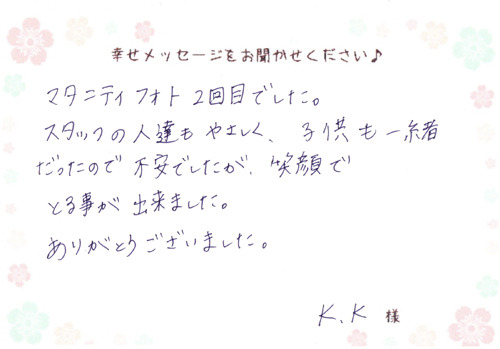 幸せメッセージをお聞かせください♪
マタニティフォト2回目でした。
スタッフの人達もやさしく、子供も一緒
だったので不安でしたが、笑顔で
とる事が出来ました。
ありがとうございました。
K.K 様